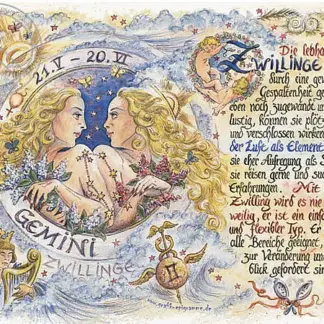 21.V - 20.VI
GEMINI
ZWILLINGE
Die lebha
ZWILLINGE
durch eine ge
Gespaltenheit ge
eben noch zugewandt un
lustig, können sie plöt
und verschlossen wirken
der Luft als Element
sie eher Aufregung als S
sie reisen gerne und suc
Erfahrungen. Mit
Zwilling wird es nie
weilig, er ist ein einf
und flexibler Typ. Er
alle Bereiche geeignet,
zur Veränderung un
blick gefordert sin